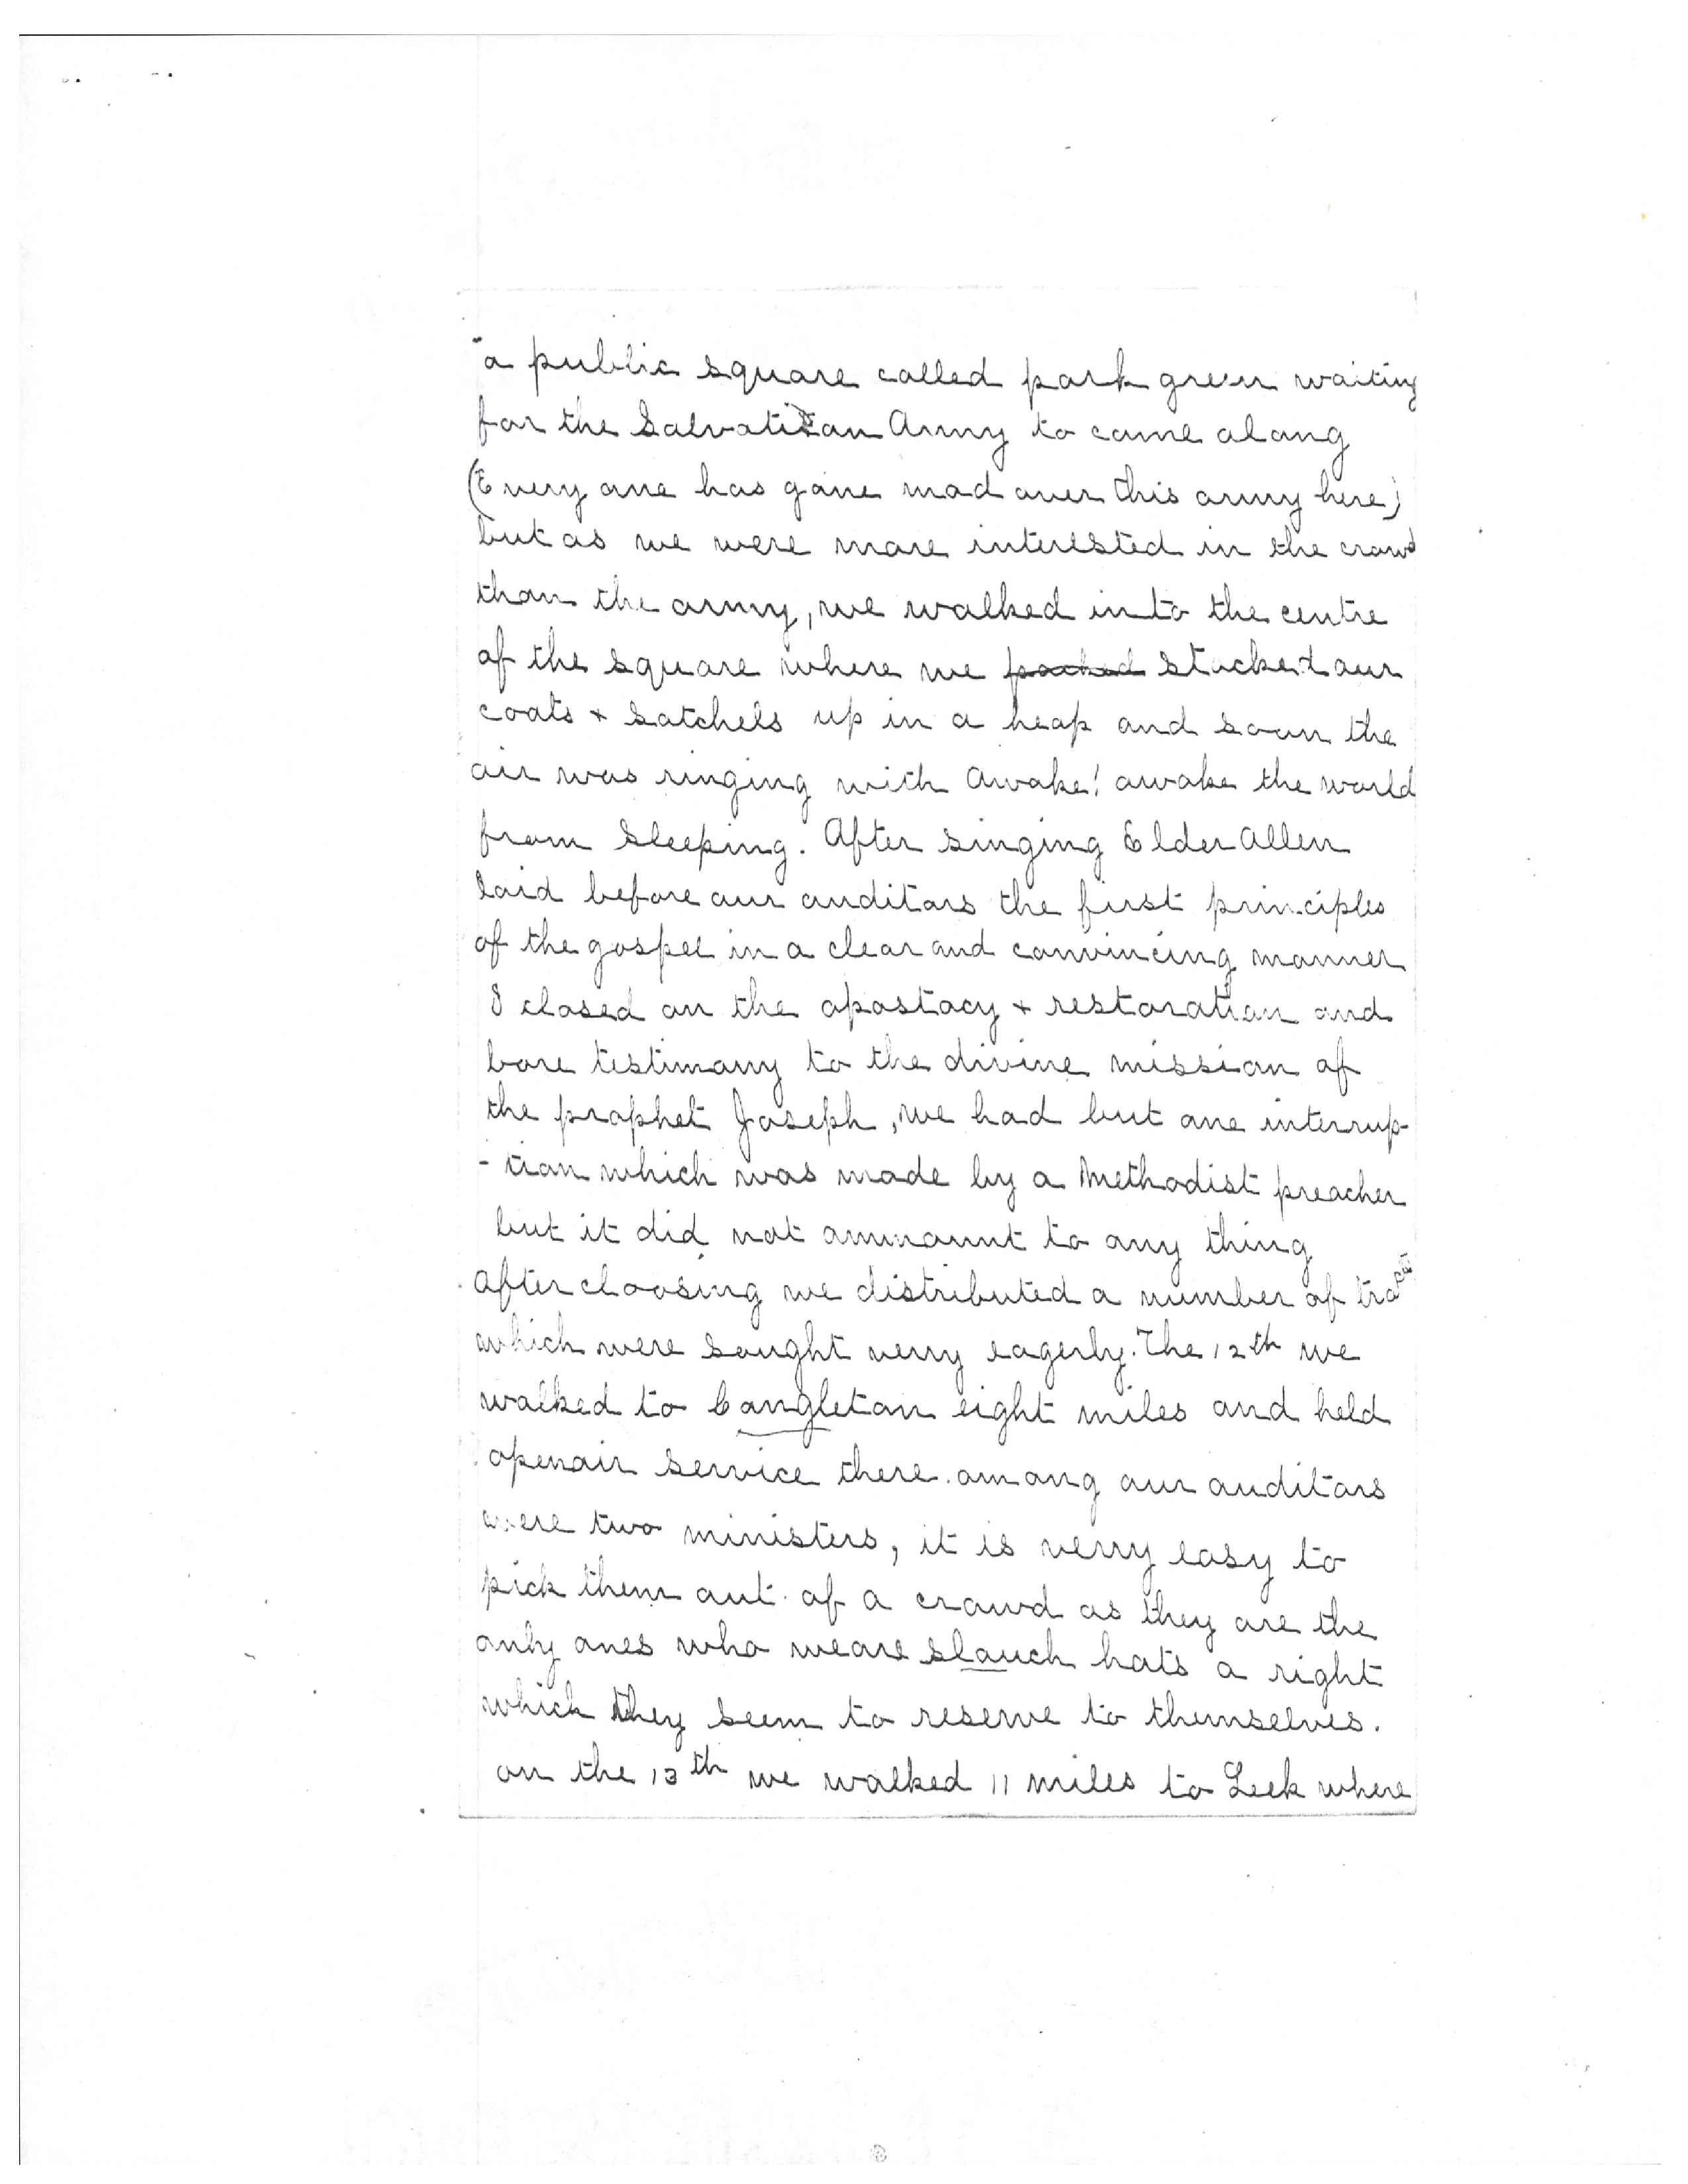 a public square called park green waiting
for the Salvation Army to come along
(Every one has gone mad over this army here)
but as we were more interested in the crowd
than the army, we walked into the centre
of the square where we packed stacked our
coats + satchels up in a heap and soon the
air was ringing with Awake! awake the world
from sleeping. After singing Elder Allen
laid before our auditors the first principles
of the gospel in a clear and convincing manner
I closed on the apostacy + restoration and
bore testimony to the divine mission of
the prophet Joseph, we had but one interrup-
-tion which was made by a Methodist preacher
but it did not ammount to any thing
After cloosing we distributed a number of tracts
which were sought verry eagerly. The 12th we
walked to Congleton eight miles and held
openair service there. among our auditors
were two ministers, it is verry easy to
pick them out of a crowd as they are the
only ones who weare slouch hats a right
which they seem to reserve to themselves.
on the 13th we walked 11 miles to Leek where